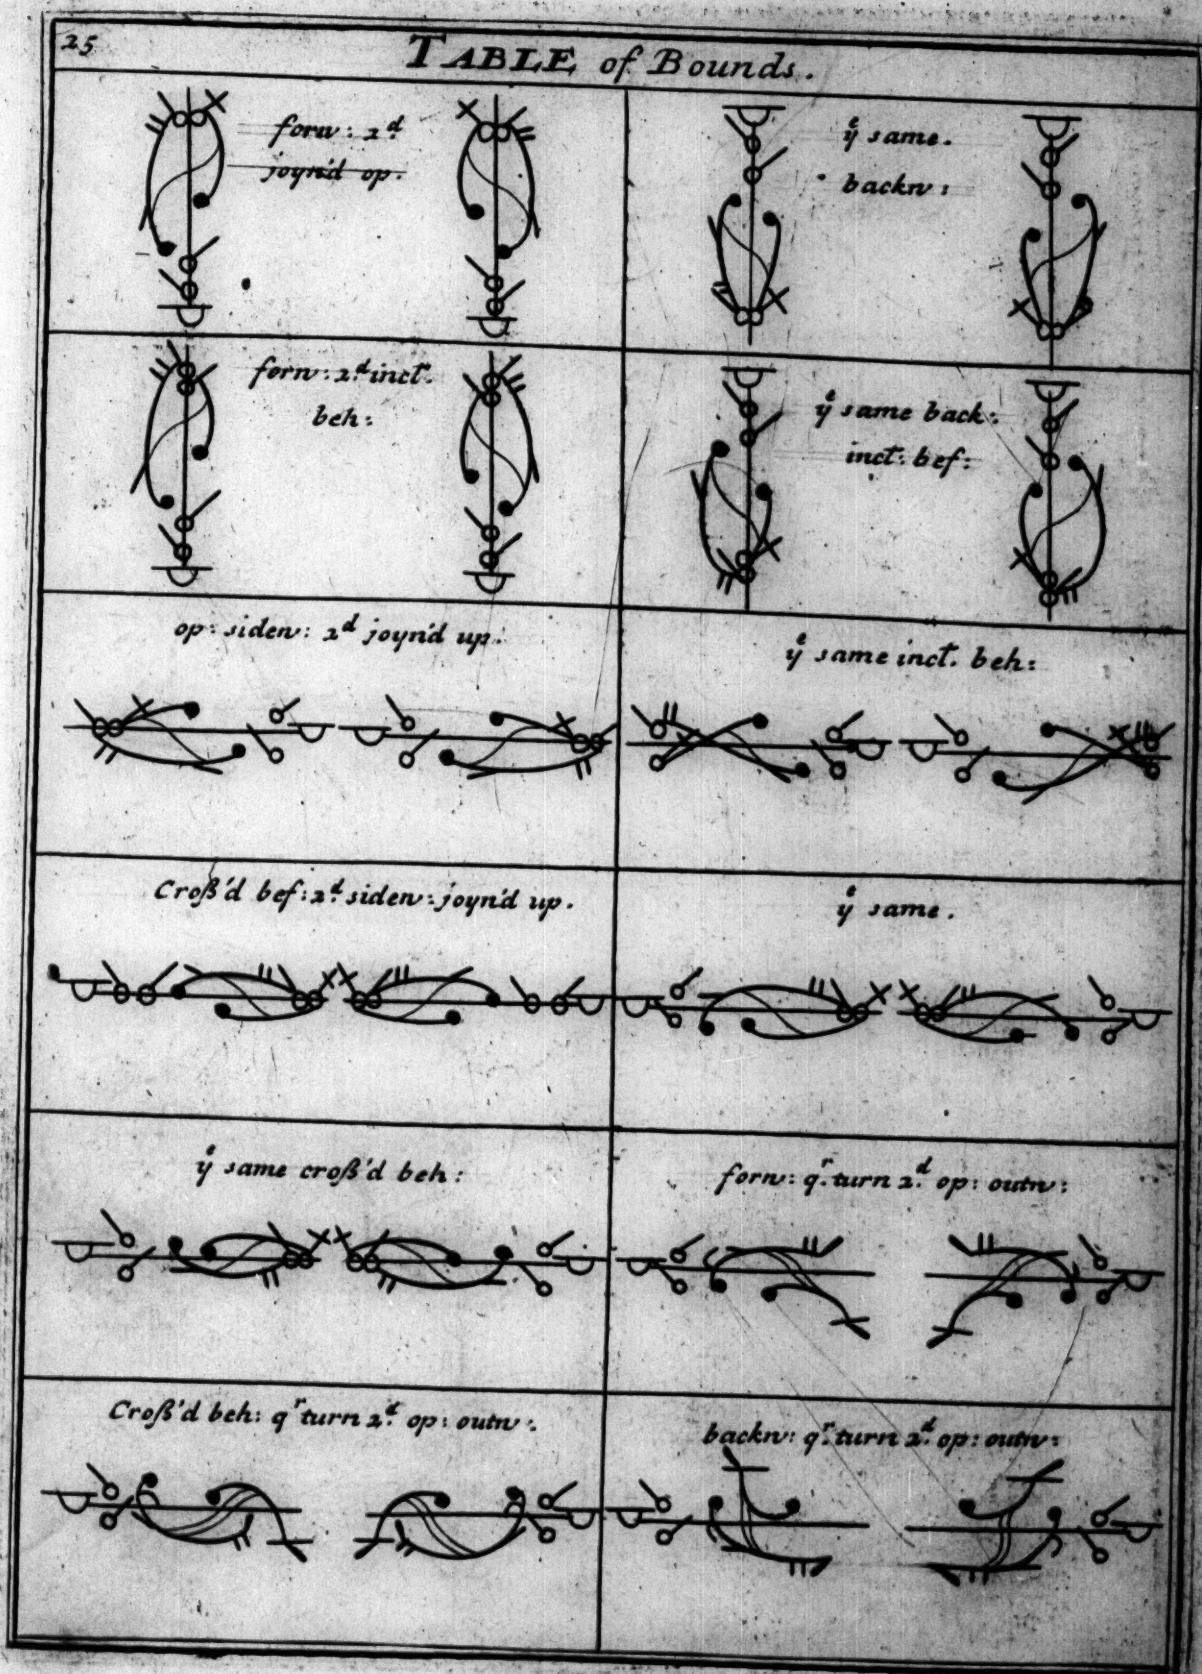 25
TABLE of Bounds.
forw: 2d
joyn'd op.
ye same.
backw:
forw: 2d inct.
beh:
ye same back:
inct: bef:
op: sidew: 2d joyn'd up.
ye same inct. beh:
Croß'd bef: 2d sidew: joyn'd up.
ye same.
ye same croß'd beh:
forw: qr. turn 2d op: outw:
Croß'd beh: qr turn 2d op: outw:
backw: qr. turn 2d op: outw: